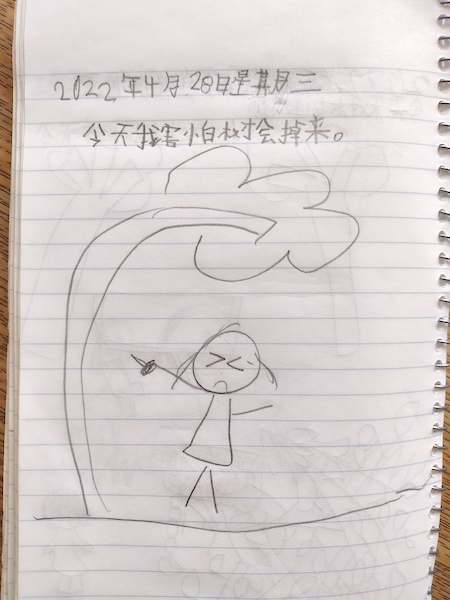 2022年4月28日星期三
今天我害怕树会掉来。